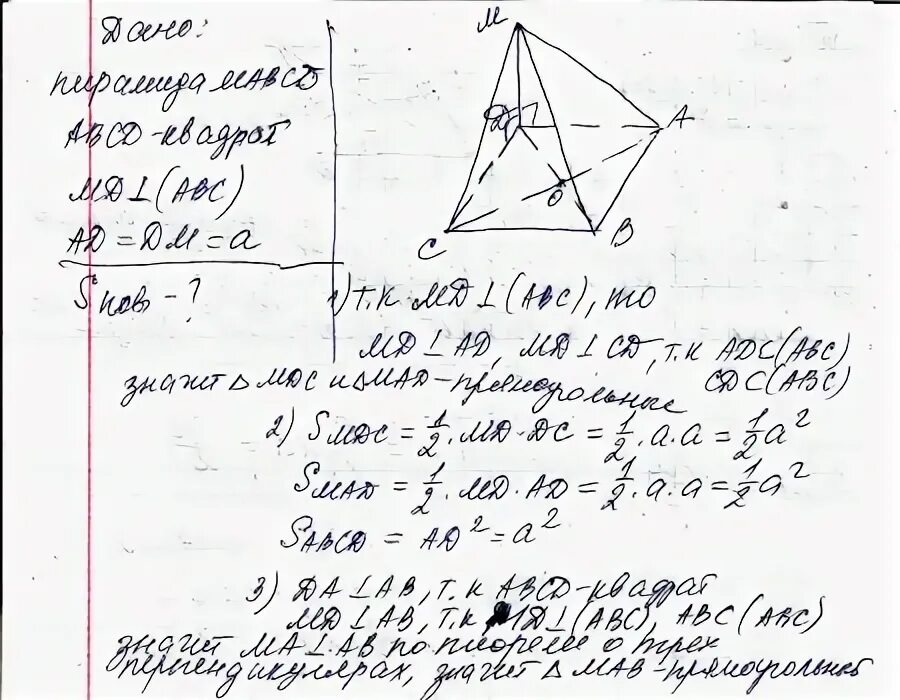 Дано:
пирамида MABCD
ABCD-квадрат
MD⊥(ABC)
AD=DM=a
Sпов-?
M
D
A
O
C
B
1) т.к MD⊥(ABC), то
MD⊥AD, MD⊥CD, т.к AD⊂(ABC)
CD⊂(ABC)
значит △MDC и △MAD-прямоугольные
2) SMDC = 1/2·MD·DC = 1/2·a·a = 1/2a²
SMAD = 1/2·MD·AD = 1/2·a·a = 1/2a²
SABCD = AD² = a²
3) DA⊥AB, т.к ABCD-квадрат
MD⊥AB, т.к MD⊥(ABC), AB⊂(ABC)
значит MA⊥AB по теореме о трех
перпендикулярах, значит △MAB-прямоугольный